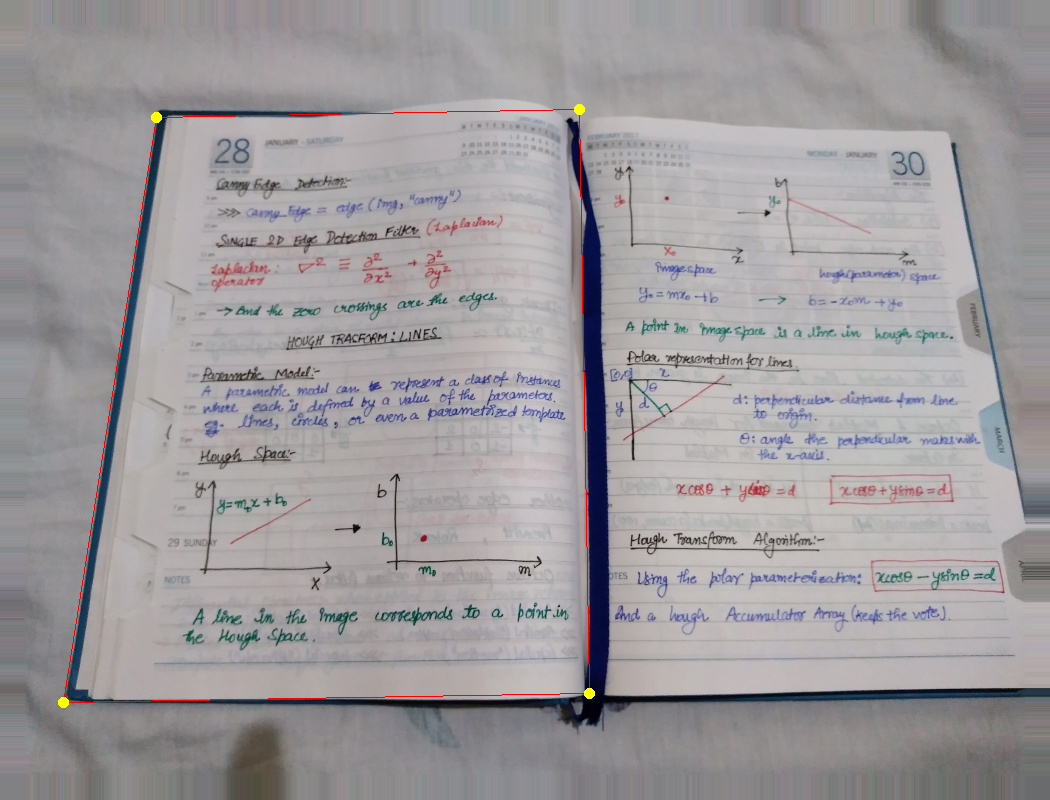 28
JANUARY - SATURDAY
Canny Edge Detection:-
>>> Canny_Edge = edge (img, "canny")
SINGLE 2D Edge Detection Filter (Laplacian)
Laplacian operator : ▽² ≡ ∂²/∂x² + ∂²/∂y²
→ And the zero crossings are the edges.
HOUGH TRASFORM: LINES
Parametric Model:-
A parametric model can represent a class of instances
where each is defined by a value of the parameters.
eg. lines, circles, or even a parametrized template
Hough Space:-
y
y = m₀x + b₀
x
b
b₀
m₀
m
29 SUNDAY
NOTES
A line in the image corresponds to a point in
the Hough Space.
FEBRUARY 2017
MONDAY - JANUARY
30
y
y₀
x₀
x
Image space
b
y₀
m
hough(parameter) space
y₀ = mx₀ + b → b = -x₀m + y₀
A point in image space is a line in hough space.
Polar representation for lines.
[0,0]
x
θ
y
d
d: perpendicular distance from line
to origin.
θ: angle the perpendicular makes with
the x-axis.
xcosθ + ysinθ = d
xcosθ + ysinθ = d
Hough Transform Algorithm:-
NOTES
Using the polar parameterization: xcosθ - ysinθ = d
And a hough Accumulator Array (keeps the vote).
FEBRUARY
MARCH